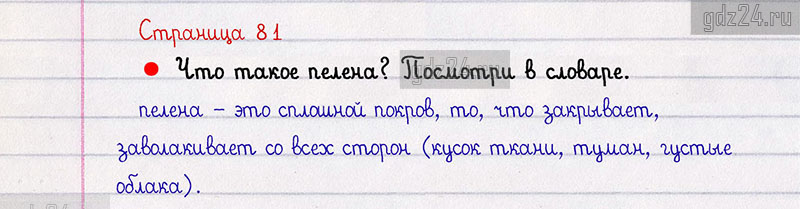 gdz24.ru
Страница 81
• Что такое пелена? Посмотри в словаре.
gdz24.ru
пелена – это сплошной покров, то, что закрывает,
заволакивает со всех сторон (кусок ткани, туман, густые
облака).
gdz24.ru